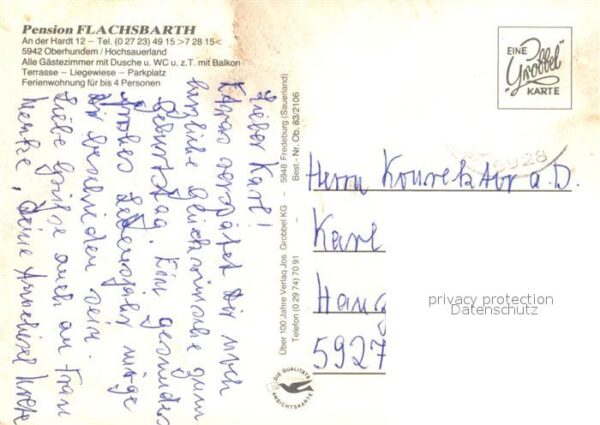 Pension FLACHSBARTH
An der Hardt 12 – Tel. (0 27 23) 49 15 >7 28 15<
5942 Oberhundem / Hochsauerland
Alle Gästezimmer mit Dusche u. WC u. z.T. mit Balkon
Terrasse – Liegewiese – Parkplatz
Ferienwohnung für bis 4 Personen
Lieber Karl!
Etwas verspätet Dir noch
herzliche Glückwünsche zum
Geburtstag. Ein gesundes
frohes Lebensjahr möge
Dir beschieden sein.
Liebe Grüße auch an Frau
Henke, Deine
Über 100 Jahre Verlag Jos. Grobbel KG – 5948 Fredeburg (Sauerland)
Telefon (0 29 74) 70 91 Best.-Nr. Ob. 83/2106
EINE
"Grobbel"
KARTE
5928
Herrn Konrektor a. D.
Karl
Haug
5927
privacy protection
Datenschutz
DIE QUALITÄTS
ANSICHTSKARTE